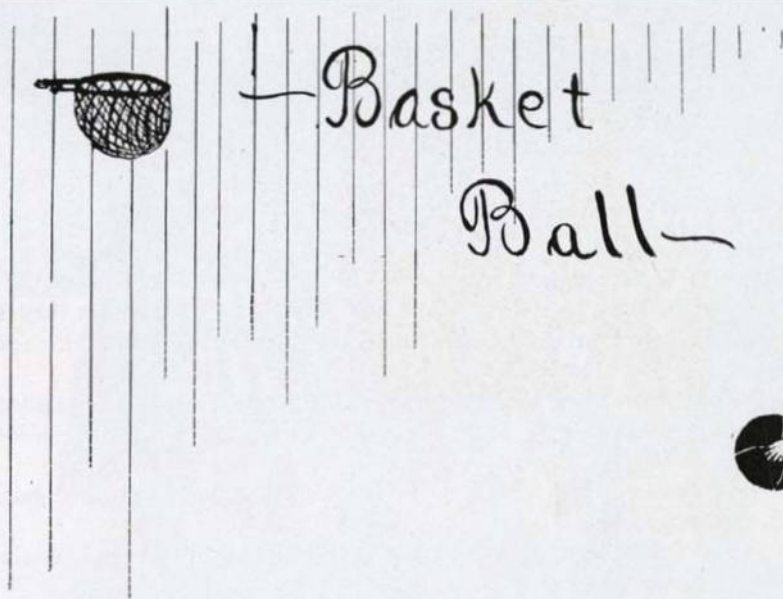 Basket
Ball